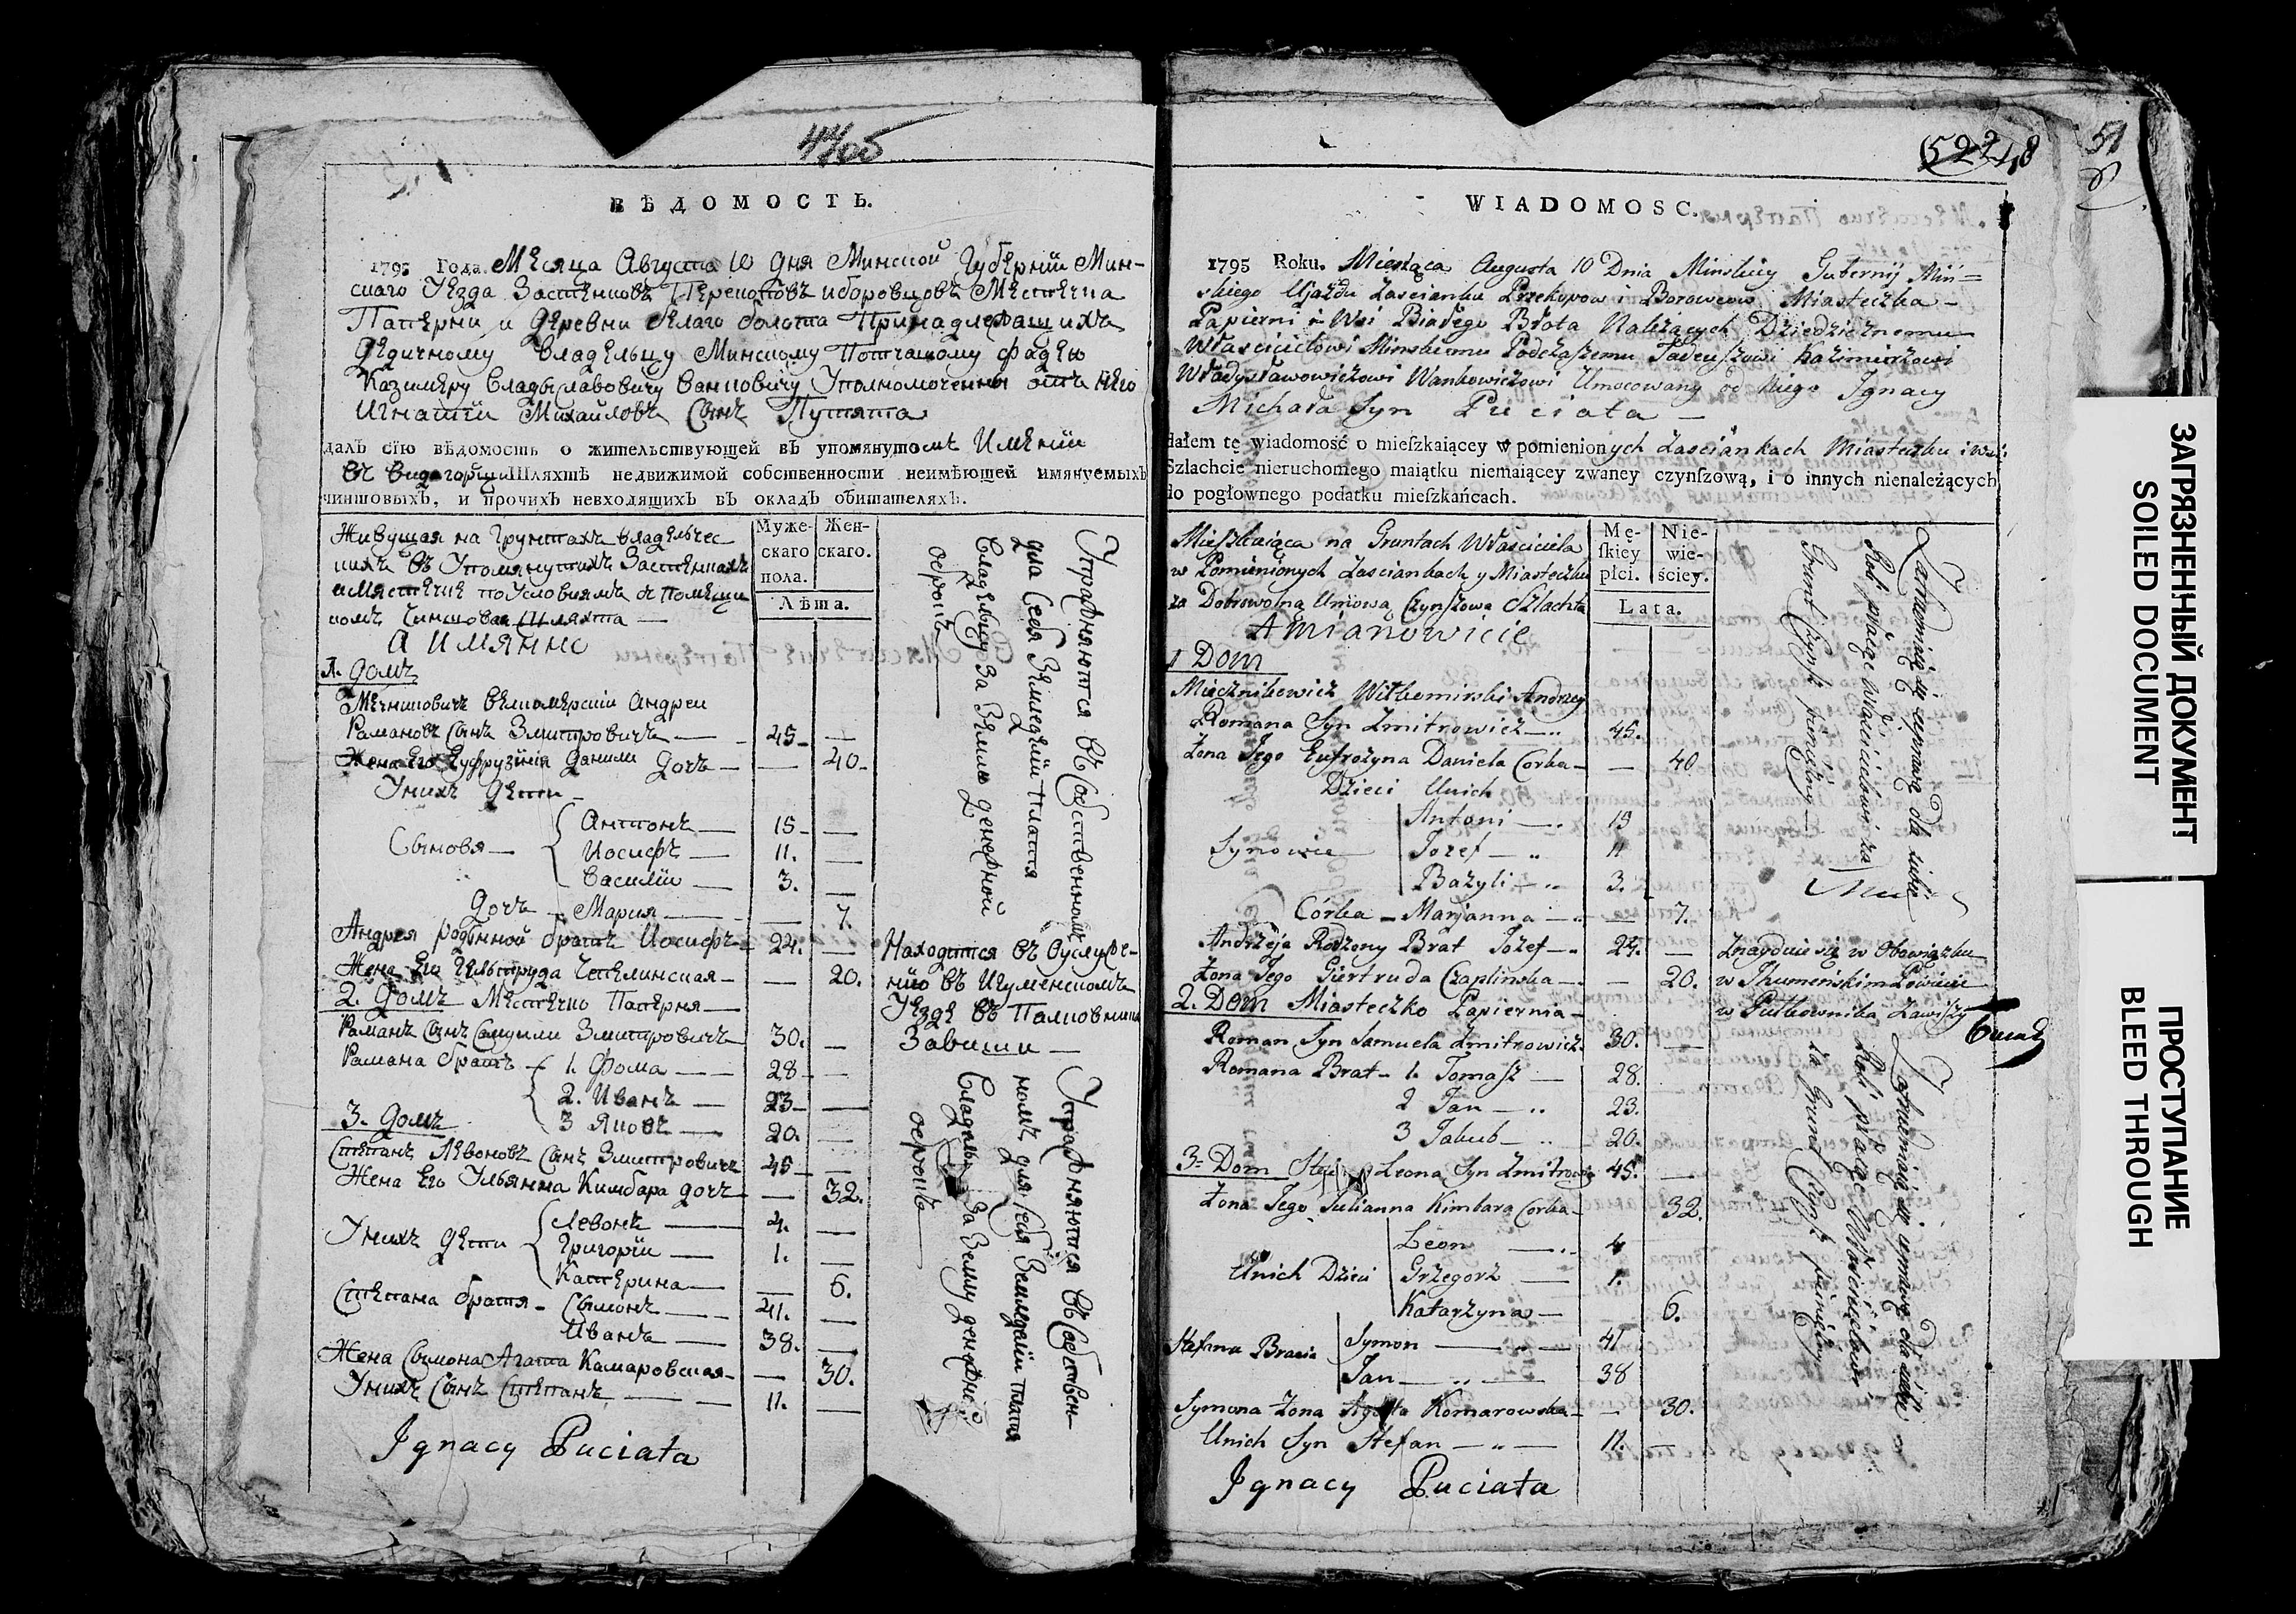 47об
ВѢДОМОСТЬ.
1795 Года. Месяца Августа 10 дня Минской Губернїи Мин-
скаго Уезда Застенковъ Перекоповъ и боровцовъ Местечка
Паперни и Деревни белаго болота Принадлежащихъ
Дедичному Владельцу Минскому Потчашому Фадею
Казимеру Владыславовичу Ванковичу Уполномоченны отъ Него
Игнатїи Михайловъ Сынъ Путята
далъ сїю вѣдомость о жительствующей въ упомянутомъ Именїи
Шляхтѣ недвижимой собственности неимѣющей имянуемыхъ
чиншовыхъ, и прочихъ невходящихъ въ окладъ обитателяхъ.
Живущая на Грунтахъ владельчес
кихъ въ Упомянутихъ Застенкахъ
и Местечке по Условиямъ с Помещи
комъ Чиншовая Шляхта
А имянно
Муже-
скаго
пола.
Жен-
скаго.
Лѣта.
1. домъ
Мечниковичъ Велкомерскїи Андреи
Рамановъ Сынъ Змитровичъ — 45 —
Жена Его Еуфрузїнїя Данили дочъ — — 40
У нихъ дети
Сыновя — Антонъ — 15 —
Иосифъ — 11. —
Василїи — 3. —
дочъ — Мария — — 7.
Андрея родънной братъ Иосифъ 24. —
Жена Его Гельтруда Чеплинская — — 20.
2. домъ Местечко Паперня
Раманъ Сынъ Самуили Змитровичъ 30. —
Рамана братъ 1. Фома — 28 —
2. Иванъ — 23 —
3 Яковъ — 20. —
3. домъ
Степанъ Левоновъ Сынъ Змитровичъ 45 —
Жена Его Ульянна Кимбара дочъ — 32.
У нихъ дети Левонъ — 4. —
Григорїи — 1. —
Катерина — — 6.
Степана братя — Сымонъ — 41. —
Иванъ — 38. —
Жена Сымона Агата Камаровская — — 30.
У нихъ Сынъ Степанъ — 11. —
Ignacy Puciata
Упражняются въ Собственномъ
для Себя Земледелїи платя
Владельцу За Землю денежной
оброкъ
Находится въ Услуже-
нїю въ Игуменскомъ
Уезде въ Палковника
Завиши
Упражняются въ Собствен-
номъ для Себя Земледелїи платя
Владельцу За Землю денежно
оброкъ
48
51
WIADOMOSC.
1795 Roku. Miesiąca Augusta 10 Dnia Minskiey Gubernij Miń=
skiego Ujazdu Zascianku Przekopow i Borowcow Miasteczka
Papierni i Wsi Białego Błota Należących Dziedzicznemu
Włascicielowi Minskiemu Podczaszemu Tadeuszowi Kazimierzowi
Władysławowiczowi Wankowiczowi Umocowany od Niego Ignacy
Michała Syn Puciata —
dałem tę wiadomość o mieſzkaiącey w pomienionych Zasciankach Miasteczku i Wsi
Szlachcie nieruchomego maiątku niemaiącey zwaney czynſzową, i o innych nienależących
do pogłownego podatku mieſzkańcach.
Mieszkaiąca na Gruntach Własciciela
w Pomienionych Zasciankach y Miasteczku
za Dobrowolną Umową Czynszowa Szlachta
A mianowicie
Mę-
ſkiey
płci.
Nie-
wie-
ściey.
Lata.
1 Dom
Miecznikewicz Wilkomirski Andrzey
Romana Syn Zmitrowicz — 45.
Zona Jego Eufrozyna Daniela Corka — — 40
Dzieci Unich
Synowie Antoni — 15
Jozef — 11
Bazyli — 3.
Córka — Marjanna — — 7.
Andrzeja Rodzony Brat Jozef — 24. —
Zona Jego Giertruda Czaplinska — — 20.
2. Dom Miasteczko Papiernia
Roman Syn Samuela Zmitrowicz 30. —
Romana Brat — 1. Tomasz — 28.
2 Jan — 23.
3 Jakub — 20.
3= Dom Leona Syn Zmitrowicz 45. —
Zona Jego Julianna Kimbara Corka — 32.
Unich Dzieci Leon — 4
Grzegorz — 1.
Katarzyna — — 6.
Stefana Bracia Symon — 41
Jan — 38
Symona Zona Agata Komarowska — — 30.
Unich Syn Stefan — 11. —
Ignacy Puciata
Zatrudniaią się uprawą dla siebie
Roli płacąc Włascicielowi za
Grunt Czynsz pieniężny
Znayduie się w Obowiązku
w Ihumeńskim Powiecie
w Pułkownika Zawiszy
Zatrudniaią się uprawą dla siebie
Roli płacąc Włascicielowi
za Grunt Czynsz pieniężny
ЗАГРЯЗНЕННЫЙ ДОКУМЕНТ
SOILED DOCUMENT
ПРОСТУПАНИЕ
BLEED THROUGH